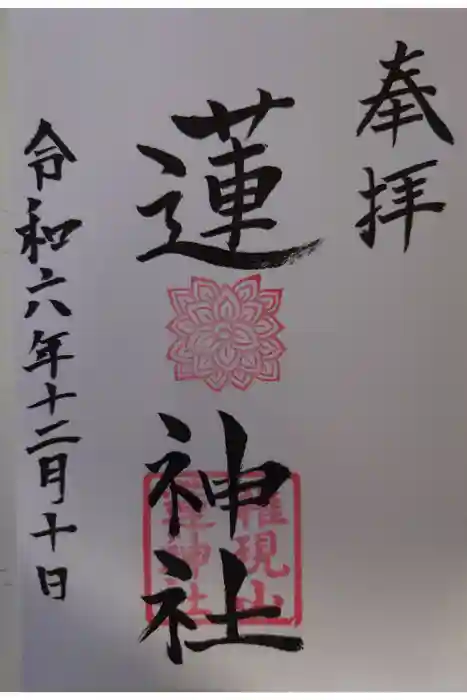 奉拝
蓮神社
権現山
蓮神社
令和六年十二月十日